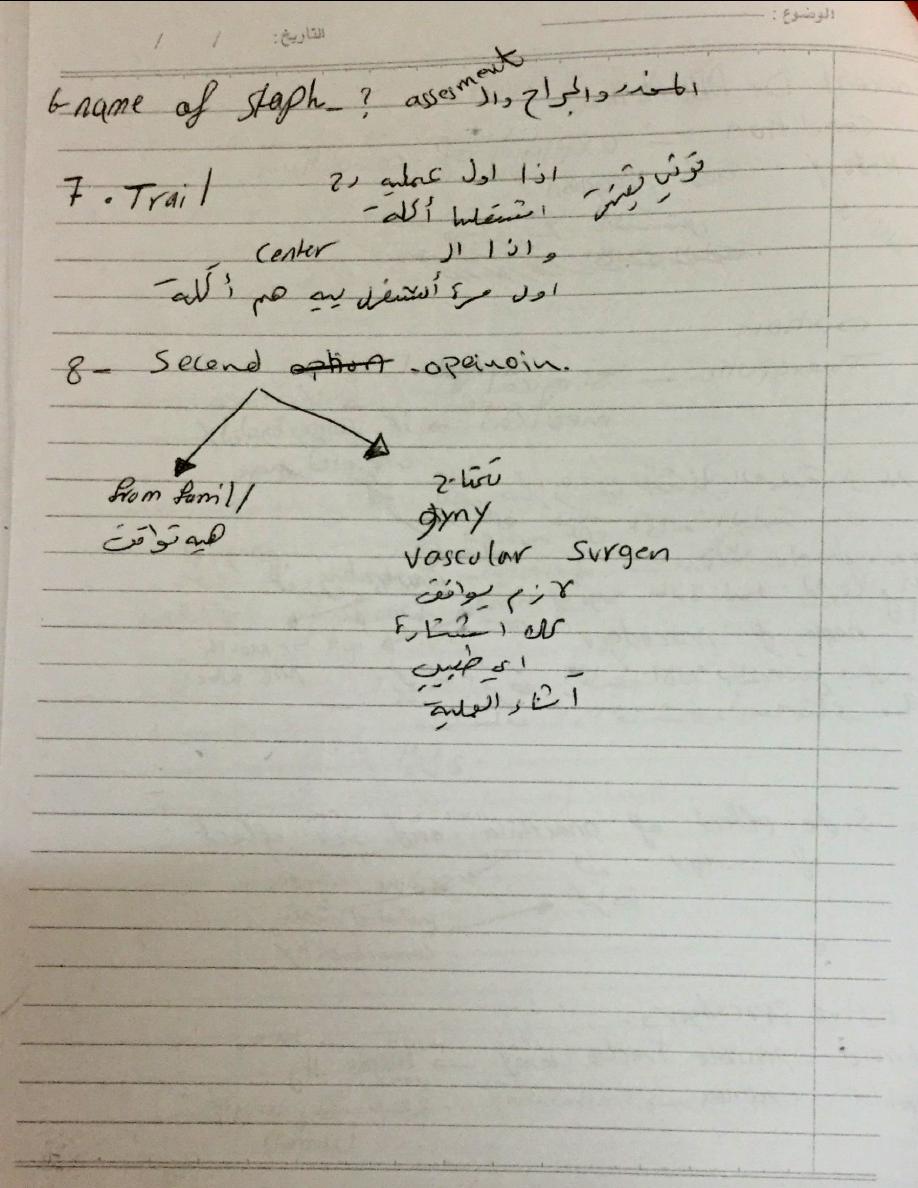 الموضوع :
التاريخ: / /
6- name of staph_ ? assesment المخدر والجراح والـ
7. Trail اذا اول عمليه رح
اشتغلها أكله
واذا الـ center
اول مرة أشتغل بيه هم أكله
8- Second option .opeinoin.
from famil/
هيه توافق
تحتاج
gyny
vascular Surgen
لازم يوافق
على استشارة
اي طبيب
أثناء العملية